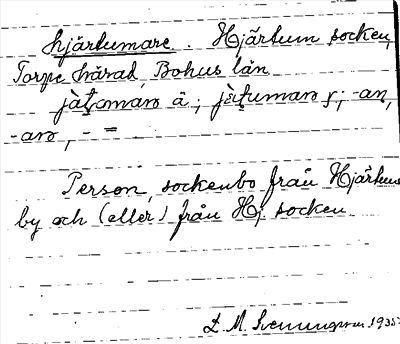 hjärtumare. Hjärtum socken,
Torpe härad, Bohus län
jàt̲oman ä; jàt̲uman y; -an,
-an, - =
Person, sockenbo från Hjärtum
by och (eller) från Hj. socken
D. M. Svenungsson 1935